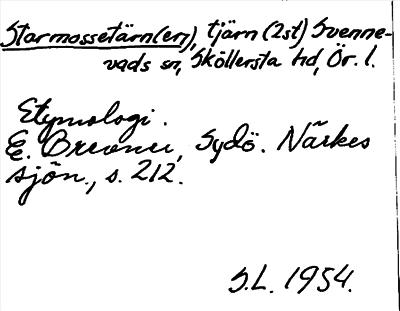 Starmossetärn(en), tjärn (2st) Svenne-
vads sn, Sköllersta hd, Ör. l.
Etymologi.
E. Brevner, Sydö. Närkes
sjön., s. 212.
S.L. 1954.